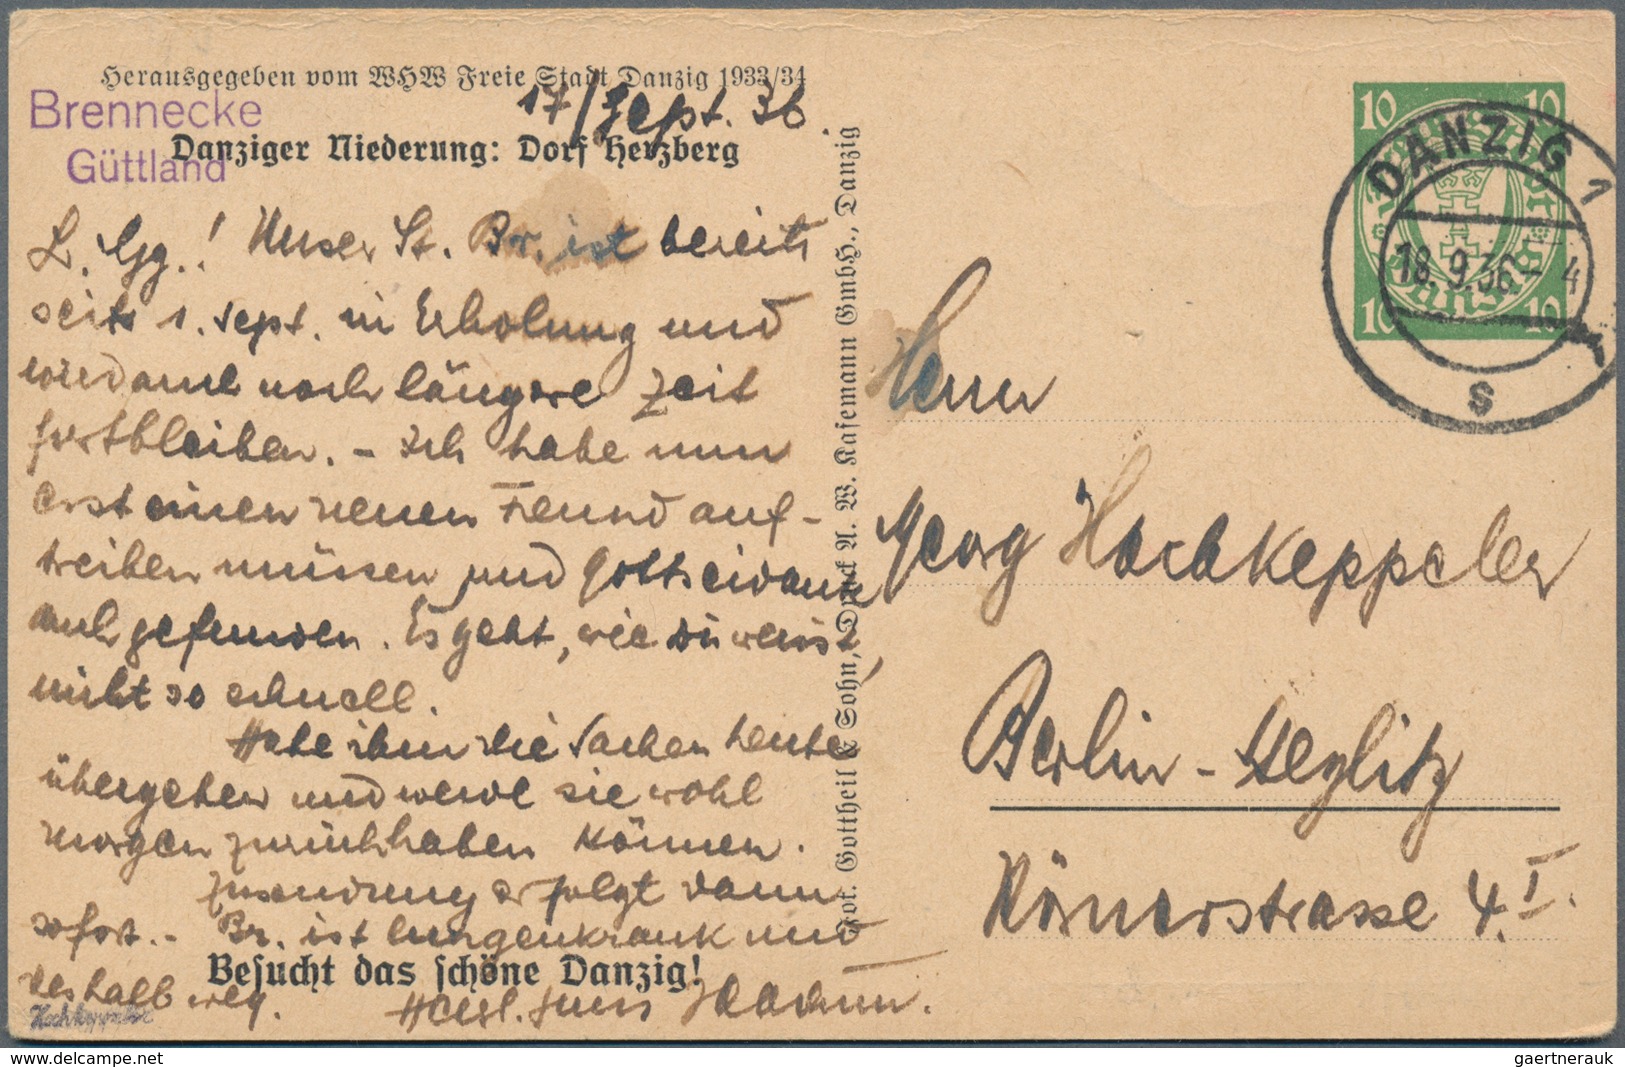 Herausgegeben vom WHW Freie Stadt Danzig 1933/34
Brennecke
Güttland
17/Sept. 36
Danziger Niederung: Dorf Herzberg
L. Gg.! Unser St. Br. ist bereits
seit 1. Sept. in Erholung und
wird auch noch längere Zeit
fortbleiben. – Ich habe nun
erst einen neuen Freund auf-
treiben müssen und Gottseidank
auch gefunden. Es geht, wie du weisst,
nicht so schnell.
Habe ihm die Sachen heute
übergeben und werde sie wohl
morgen zurückhaben können.
Zusendung erfolgt dann
sofort. – Br. ist lungenkrank und
deshalb weg.
Besucht das schöne Danzig!
Herzl. Gruss
Fot. Gottheil & Sohn, Druck A. W. Kafemann GmbH., Danzig
10 10
10 10
DANZIG 1
18.9.36 – 4
s
Herrn
Georg Hochkeppeler
Berlin-Steglitz
Körnerstrasse 4. I.
delcampe.net
gaertnerauk